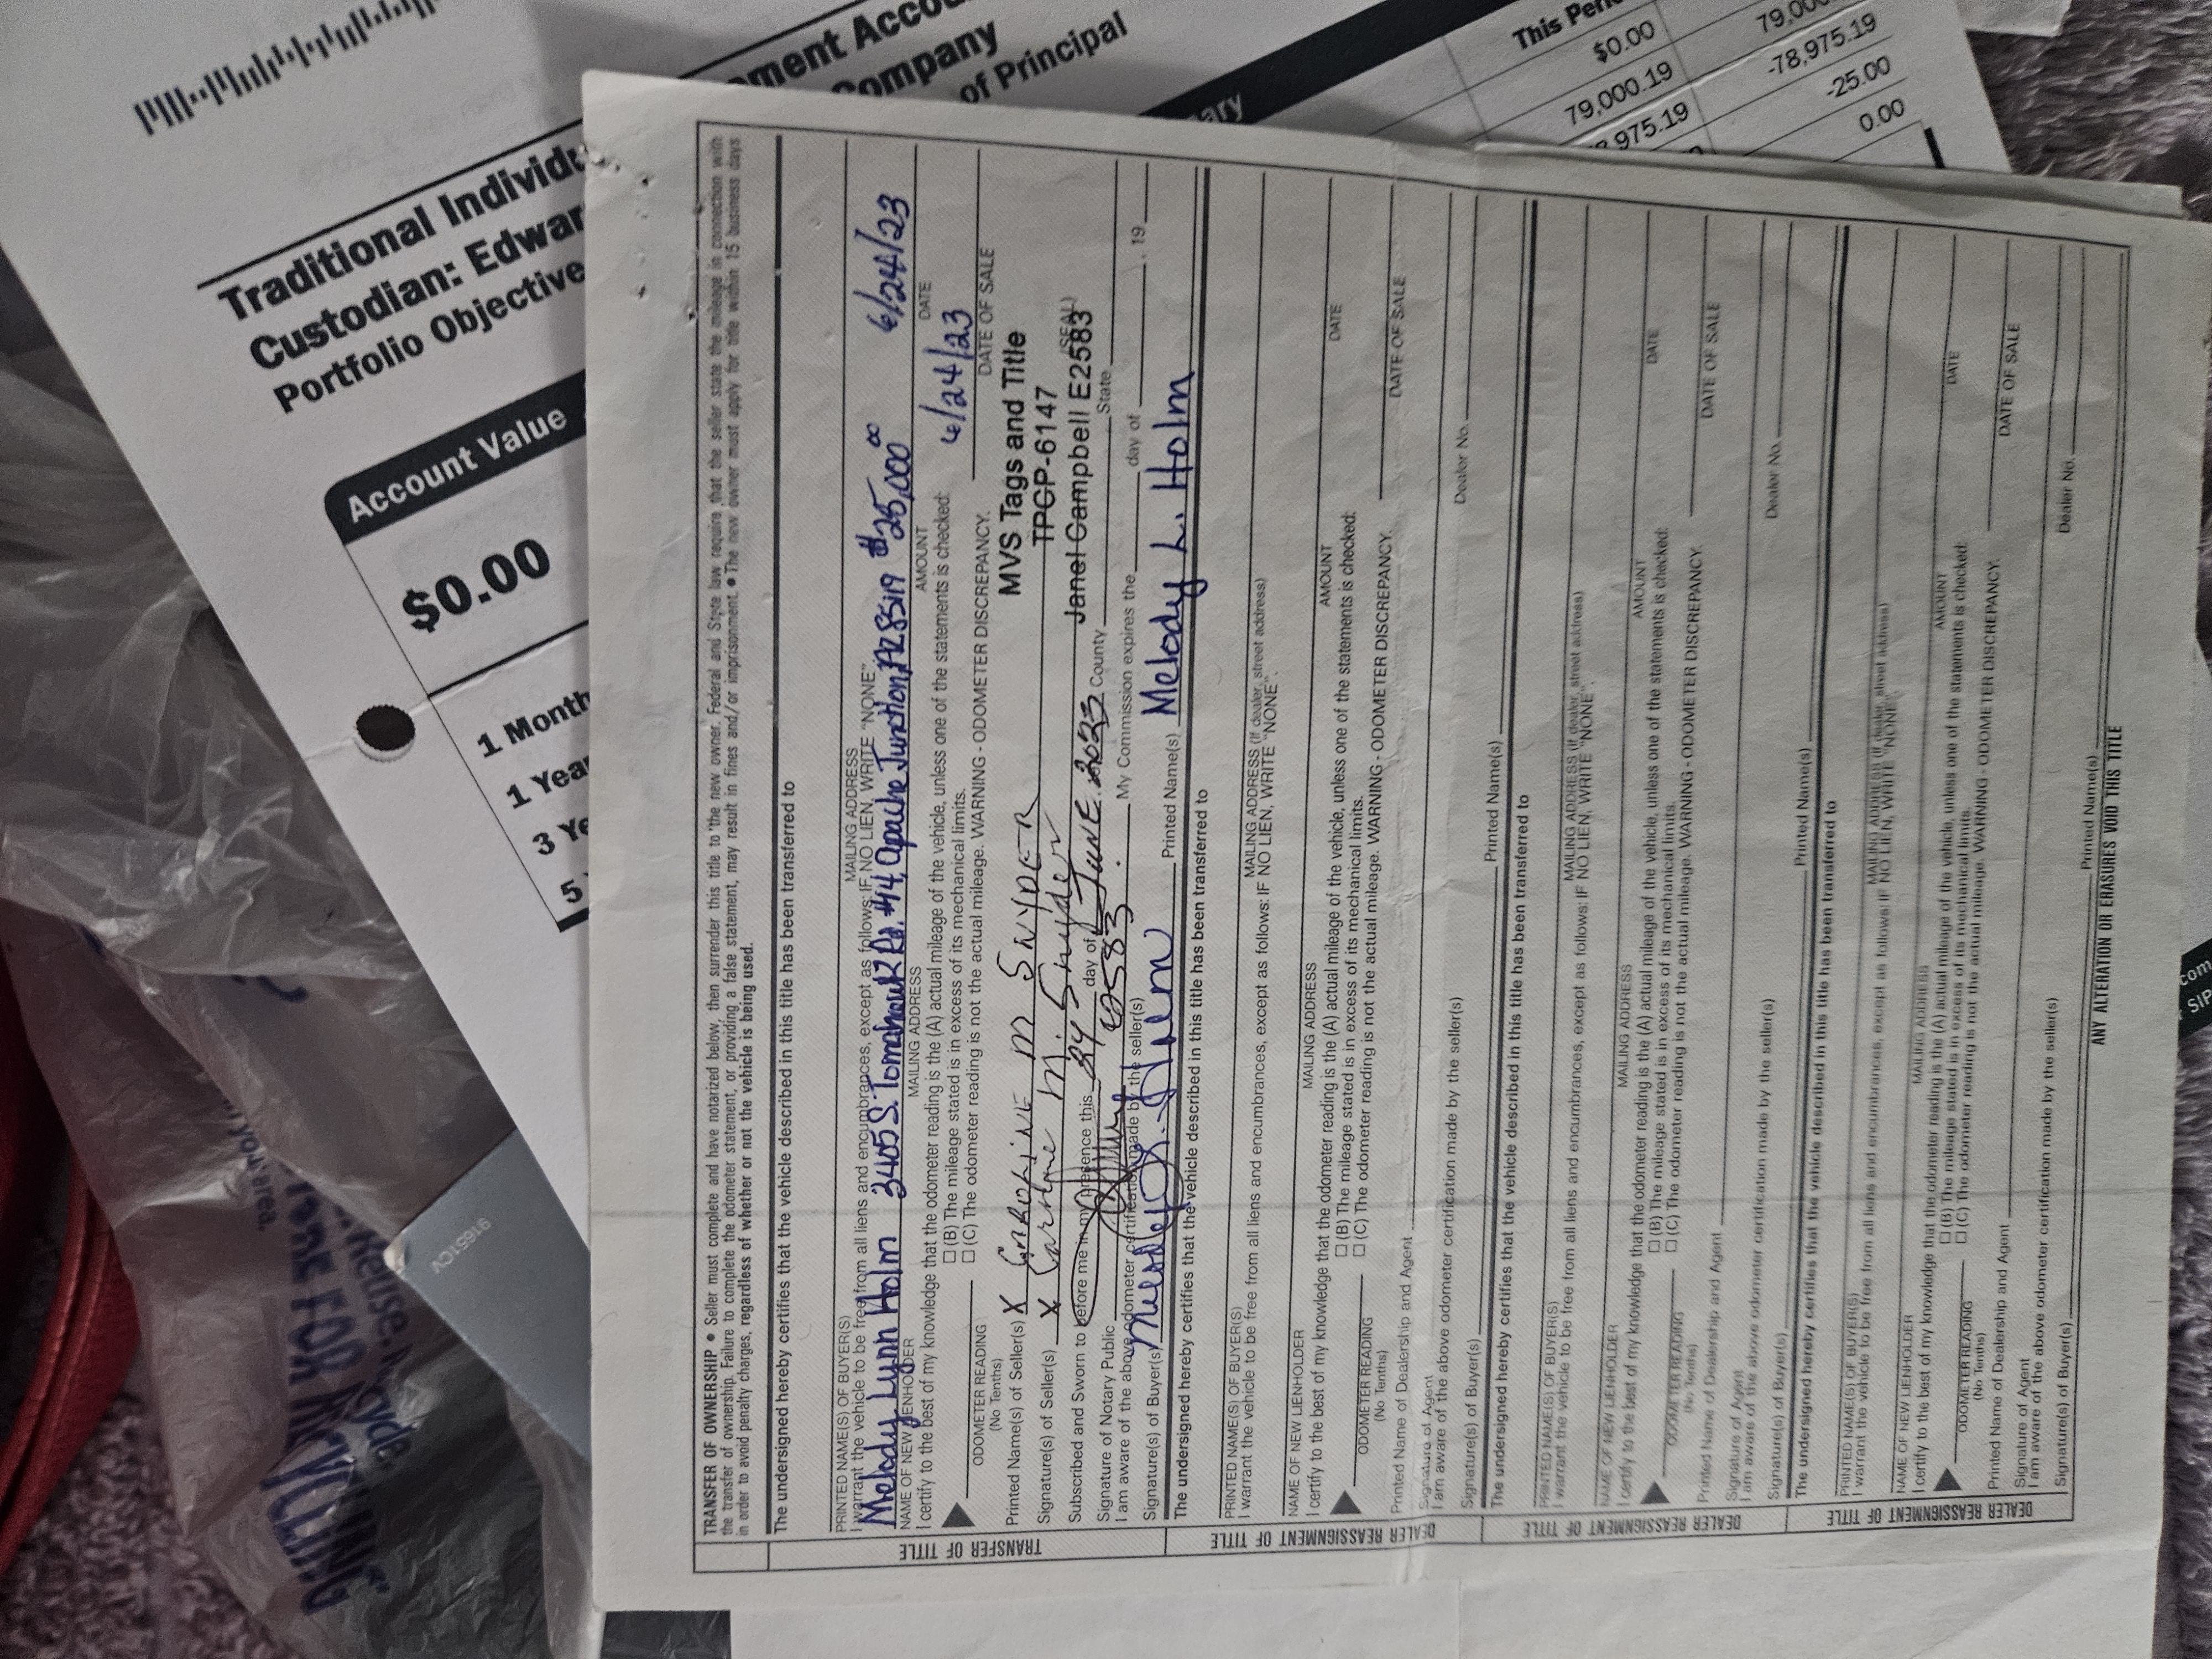 Traditional Individu
Custodian: Edwar
Portfolio Objective
ment Accou
Company
of Principal
ary
This Peri
$0.00
79,000.19
79,00
-78,975.19
975.19
-25.00
0.00
Account Value
$0.00
1 Month
1 Yea
3 Ye
5
TRANSFER OF OWNERSHIP ● Seller must complete and have notarized below, then surrender this title to the new owner. Federal and State law require that the seller state the mileage in connection with
the transfer of ownership. Failure to complete the odometer statement, or providing a false statement, may result in fines and/or imprisonment. ● The new owner must apply for title within 15 business days
in order to avoid penalty charges, regardless of whether or not the vehicle is being used.
TRANSFER OF TITLE
The undersigned hereby certifies that the vehicle described in this title has been transferred to
6/24/23
PRINTED NAME(S) OF BUYER(S) MAILING ADDRESS
I warrant the vehicle to be free from all liens and encumbrances, except as follows: IF NO LIEN, WRITE "NONE"
Melody Lynn Holm 3405 S. Tomahawk Rd. #4, Apache Junction, AZ 85119 $25,000.00
NAME OF NEW LIENHOLDER MAILING ADDRESS AMOUNT DATE
I certify to the best of my knowledge that the odometer reading is the (A) actual mileage of the vehicle, unless one of the statements is checked:
6/24/23
☐ (B) The mileage stated is in excess of its mechanical limits.
ODOMETER READING ☐ (C) The odometer reading is not the actual mileage. WARNING - ODOMETER DISCREPANCY. DATE OF SALE
(No Tenths)
Printed Name(s) of Seller(s) X CAROLINE M SNYDER
MVS Tags and Title
Signature(s) of Seller(s) X Caroline M. Snyder
TPCP-6147
Subscribed and Sworn to before me in my presence this 24 day of JUNE 2023 County State
Janel Campbell E2583
(SEAL)
Signature of Notary Public E2583 My Commission expires the day of , 19
I am aware of the above odometer certification made by the seller(s)
Signature(s) of Buyer(s) Melody L. Holm Printed Name(s) Melody L. Holm
DEALER REASSIGNMENT OF TITLE
The undersigned hereby certifies that the vehicle described in this title has been transferred to
PRINTED NAME(S) OF BUYER(S) MAILING ADDRESS (If dealer, street address)
I warrant the vehicle to be free from all liens and encumbrances, except as follows: IF NO LIEN, WRITE "NONE".
NAME OF NEW LIENHOLDER MAILING ADDRESS AMOUNT DATE
I certify to the best of my knowledge that the odometer reading is the (A) actual mileage of the vehicle, unless one of the statements is checked:
☐ (B) The mileage stated is in excess of its mechanical limits.
ODOMETER READING ☐ (C) The odometer reading is not the actual mileage. WARNING - ODOMETER DISCREPANCY. DATE OF SALE
(No Tenths)
Printed Name of Dealership and Agent
Signature of Agent Dealer No.
I am aware of the above odometer certification made by the seller(s)
Signature(s) of Buyer(s) Printed Name(s)
DEALER REASSIGNMENT OF TITLE
The undersigned hereby certifies that the vehicle described in this title has been transferred to
PRINTED NAME(S) OF BUYER(S) MAILING ADDRESS (If dealer, street address)
I warrant the vehicle to be free from all liens and encumbrances, except as follows: IF NO LIEN, WRITE "NONE".
NAME OF NEW LIENHOLDER MAILING ADDRESS AMOUNT DATE
I certify to the best of my knowledge that the odometer reading is the (A) actual mileage of the vehicle, unless one of the statements is checked:
☐ (B) The mileage stated is in excess of its mechanical limits.
ODOMETER READING ☐ (C) The odometer reading is not the actual mileage. WARNING - ODOMETER DISCREPANCY. DATE OF SALE
(No Tenths)
Printed Name of Dealership and Agent
Signature of Agent Dealer No.
I am aware of the above odometer certification made by the seller(s)
Signature(s) of Buyer(s) Printed Name(s)
DEALER REASSIGNMENT OF TITLE
The undersigned hereby certifies that the vehicle described in this title has been transferred to
PRINTED NAME(S) OF BUYER(S) MAILING ADDRESS (If dealer, street address)
I warrant the vehicle to be free from all liens and encumbrances, except as follows: IF NO LIEN, WRITE "NONE".
NAME OF NEW LIENHOLDER MAILING ADDRESS AMOUNT DATE
I certify to the best of my knowledge that the odometer reading is the (A) actual mileage of the vehicle, unless one of the statements is checked:
☐ (B) The mileage stated is in excess of its mechanical limits.
ODOMETER READING ☐ (C) The odometer reading is not the actual mileage. WARNING - ODOMETER DISCREPANCY. DATE OF SALE
(No Tenths)
Printed Name of Dealership and Agent
Signature of Agent Dealer No.
I am aware of the above odometer certification made by the seller(s)
Signature(s) of Buyer(s) Printed Name(s)
ANY ALTERATION OR ERASURES VOID THIS TITLE
area.
FOR RECYCLING
91651CV
.com
SIP